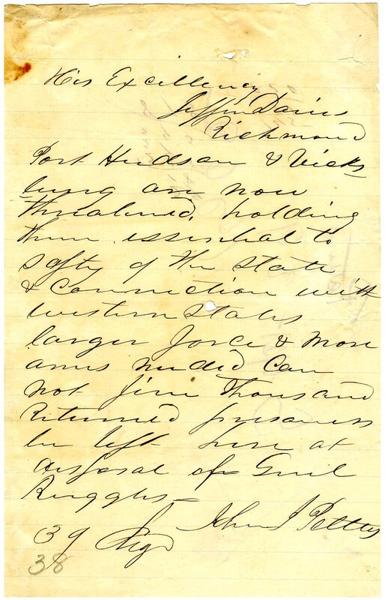 His Excellency
Jeffn Davis
Richmond
Port Hudson & Vicks
burg are now
threatened, holding
them essential to
safty of the State
& Connection with
western States
larger force & more
arms needed Can
not five thousand
returned prisoners
be left here at
disposal of Genl
Ruggles –
John J Pettus
39
38